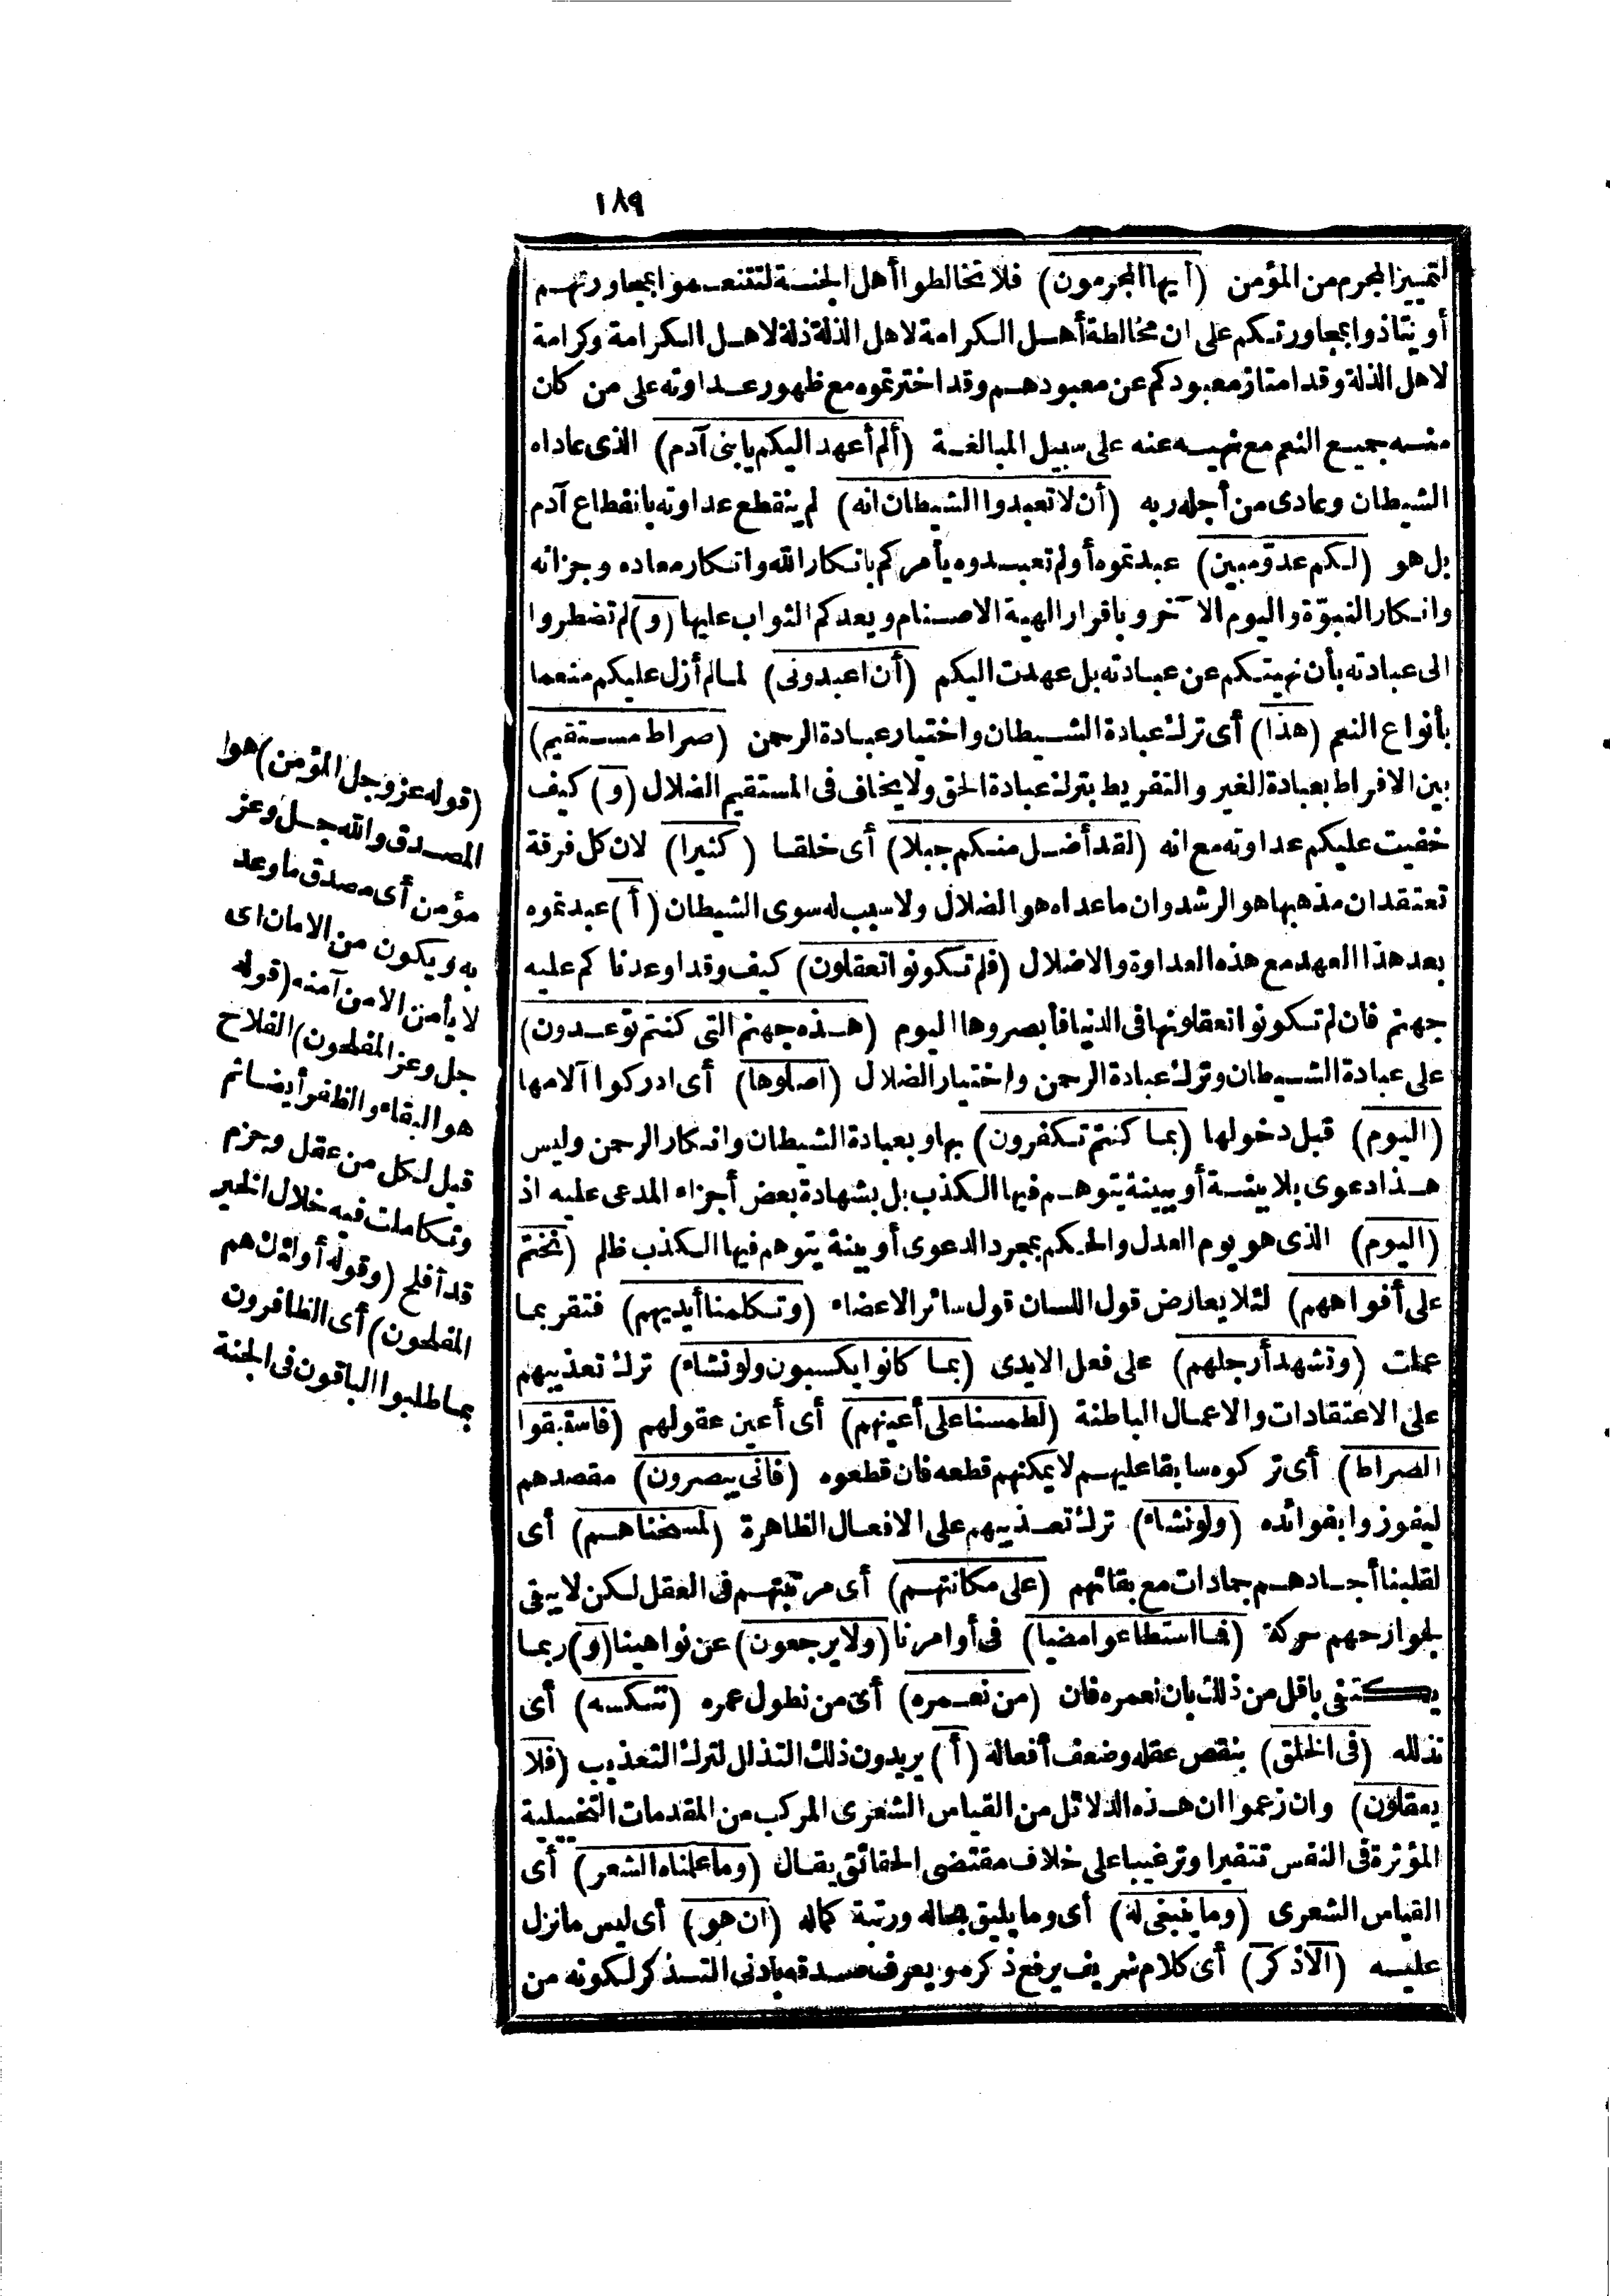 ١٨٩
لتمييز المجرم من المؤمن (أيها المجرمون) فلا تخالطوا أهل الجنة لتتنعموا بمجاورتهم
أو يتأذوا بمجاورتكم على ان مخالطة أهل الكرامة لاهل الذلة ذلة لاهل الكرامة وكرامة
لاهل الذلة وقد امتاز معبودكم عن معبودهم وقد اخترتموه مع ظهور عداوته على من كان
منه جميع النعم مع نهيه عنه على سبيل المبالغة (ألم أعهد اليكم يا بنى آدم) الذى عاداه
الشيطان وعادى من أجله ربه (أن لا تعبدوا الشيطان انه) لم ينقطع عداوته بانقطاع آدم
بل هو (لكم عدوّ مبين) عبدتموه أولم تعبدوه يأمركم بانكار الله وانكار معاده وجزائه
وانكار النبوّة واليوم الآخر وباقرار الهية الاصنام ويعدكم الثواب عليها (و) لم تضطروا
الى عبادته بأن نهيتكم عن عبادته بل عهدت اليكم (أن اعبدونى) لما لم أزل عليكم منعما
بأنواع النعم (هذا) أى ترك عبادة الشيطان واختيار عبادة الرحمن (صراط مستقيم)
بين الافراط بعبادة الغير والتفريط بترك عبادة الحق ولا يخاف فى المستقيم الضلال (و) كيف
خفيت عليكم عداوته مع انه (لقد أضل منكم جبلا) أى خلقا (كثيرا) لان كل فرقة
تعتقد ان مذهبها هو الرشد وان ما عداه هو الضلال ولا سبب له سوى الشيطان (أ) عبدتموه
بعد هذا العهد مع هذه العداوة والاضلال (فلم تكونوا تعقلون) كيف وقد اوعدنا كم عليه
جهنم فان لم تكونوا تعقلونها فى الدنيا فأبصروها اليوم (هذه جهنم التى كنتم توعدون)
على عبادة الشيطان وترك عبادة الرحمن واختيار الضلال (اصلوها) أى ادركوا آلامها
(اليوم) قبل دخولها (بما كنتم تكفرون) بها وبعبادة الشيطان وانكار الرحمن وليس
هذا دعوى بلا بينة أو ببينة يتوهم فيها الكذب بل بشهادة بعض أجزاء المدعى عليه اذ
(اليوم) الذى هو يوم العدل والحكم بمجرد الدعوى أو بينة يتوهم فيها الكذب ظلم (نختم
على أفواههم) لئلا يعارض قول اللسان قول سائر الاعضاء (وتكلمنا أيديهم) فتقر بما
عملت (وتشهد أرجلهم) على فعل الايدى (بما كانوا يكسبون ولو نشاء) ترك تعذيبهم
على الاعتقادات والاعمال الباطنة (لطمسنا على أعينهم) أى أعين عقولهم (فاستبقوا
الصراط) أى تركوه سابقا عليهم لا يمكنهم قطعه فان قطعوه (فأنى يبصرون) مقصدهم
ليفوزوا بفوائده (ولو نشاء) ترك تعذيبهم على الافعال الظاهرة (لمسخناهم) أى
لقلبنا أجسادهم جمادات مع بقائهم (على مكانتهم) أى مرتبتهم فى العقل لكن لا يبقى
لجوارحهم حركة (فما استطاعوا مضيا) فى أوامرنا (ولا يرجعون) عن نواهينا (و) ربما
يكتفى باقل من ذلك بان نعمره فان (من نعمره) أى من نطول عمره (ننكسه) أى
نذلله (فى الخلق) بنقص عقله وضعف أفعاله (أ) يريدون ذلك التذلل لترك التعذيب (فلا
يعقلون) وان زعموا ان هذه الدلائل من القياس الشعرى المركب من المقدمات التخييلية
المؤثرة فى النفس تنفيرا وترغيبا على خلاف مقتضى الحقائق يقال (وما علمناه الشعر) أى
القياس الشعرى (وما ينبغى له) أى وما يليق بحاله ورتبة كماله (ان هو) أى ليس ما نزل
عليه (الا ذكر) أى كلام شريف يرفع ذكره ويعرف صدقه بادنى التذكر لكونه من
(قوله عز وجل المؤمن) هوا
المصدق والله جل وعز
مؤمن أى مصدق ما وعد
به ويكون من الامان اى
لا يأمن الا من آمنه (قوله
جل وعز المفلحون) الفلاح
هو البقاء والظفر أيضا ثم
قيل لكل من عقل وحزم
وتكاملت فيه خلال الخير
قد أفلح (وقوله أولئك هم
المفلحون) أى الظافرون
بما طلبوا الباقون فى الجنة